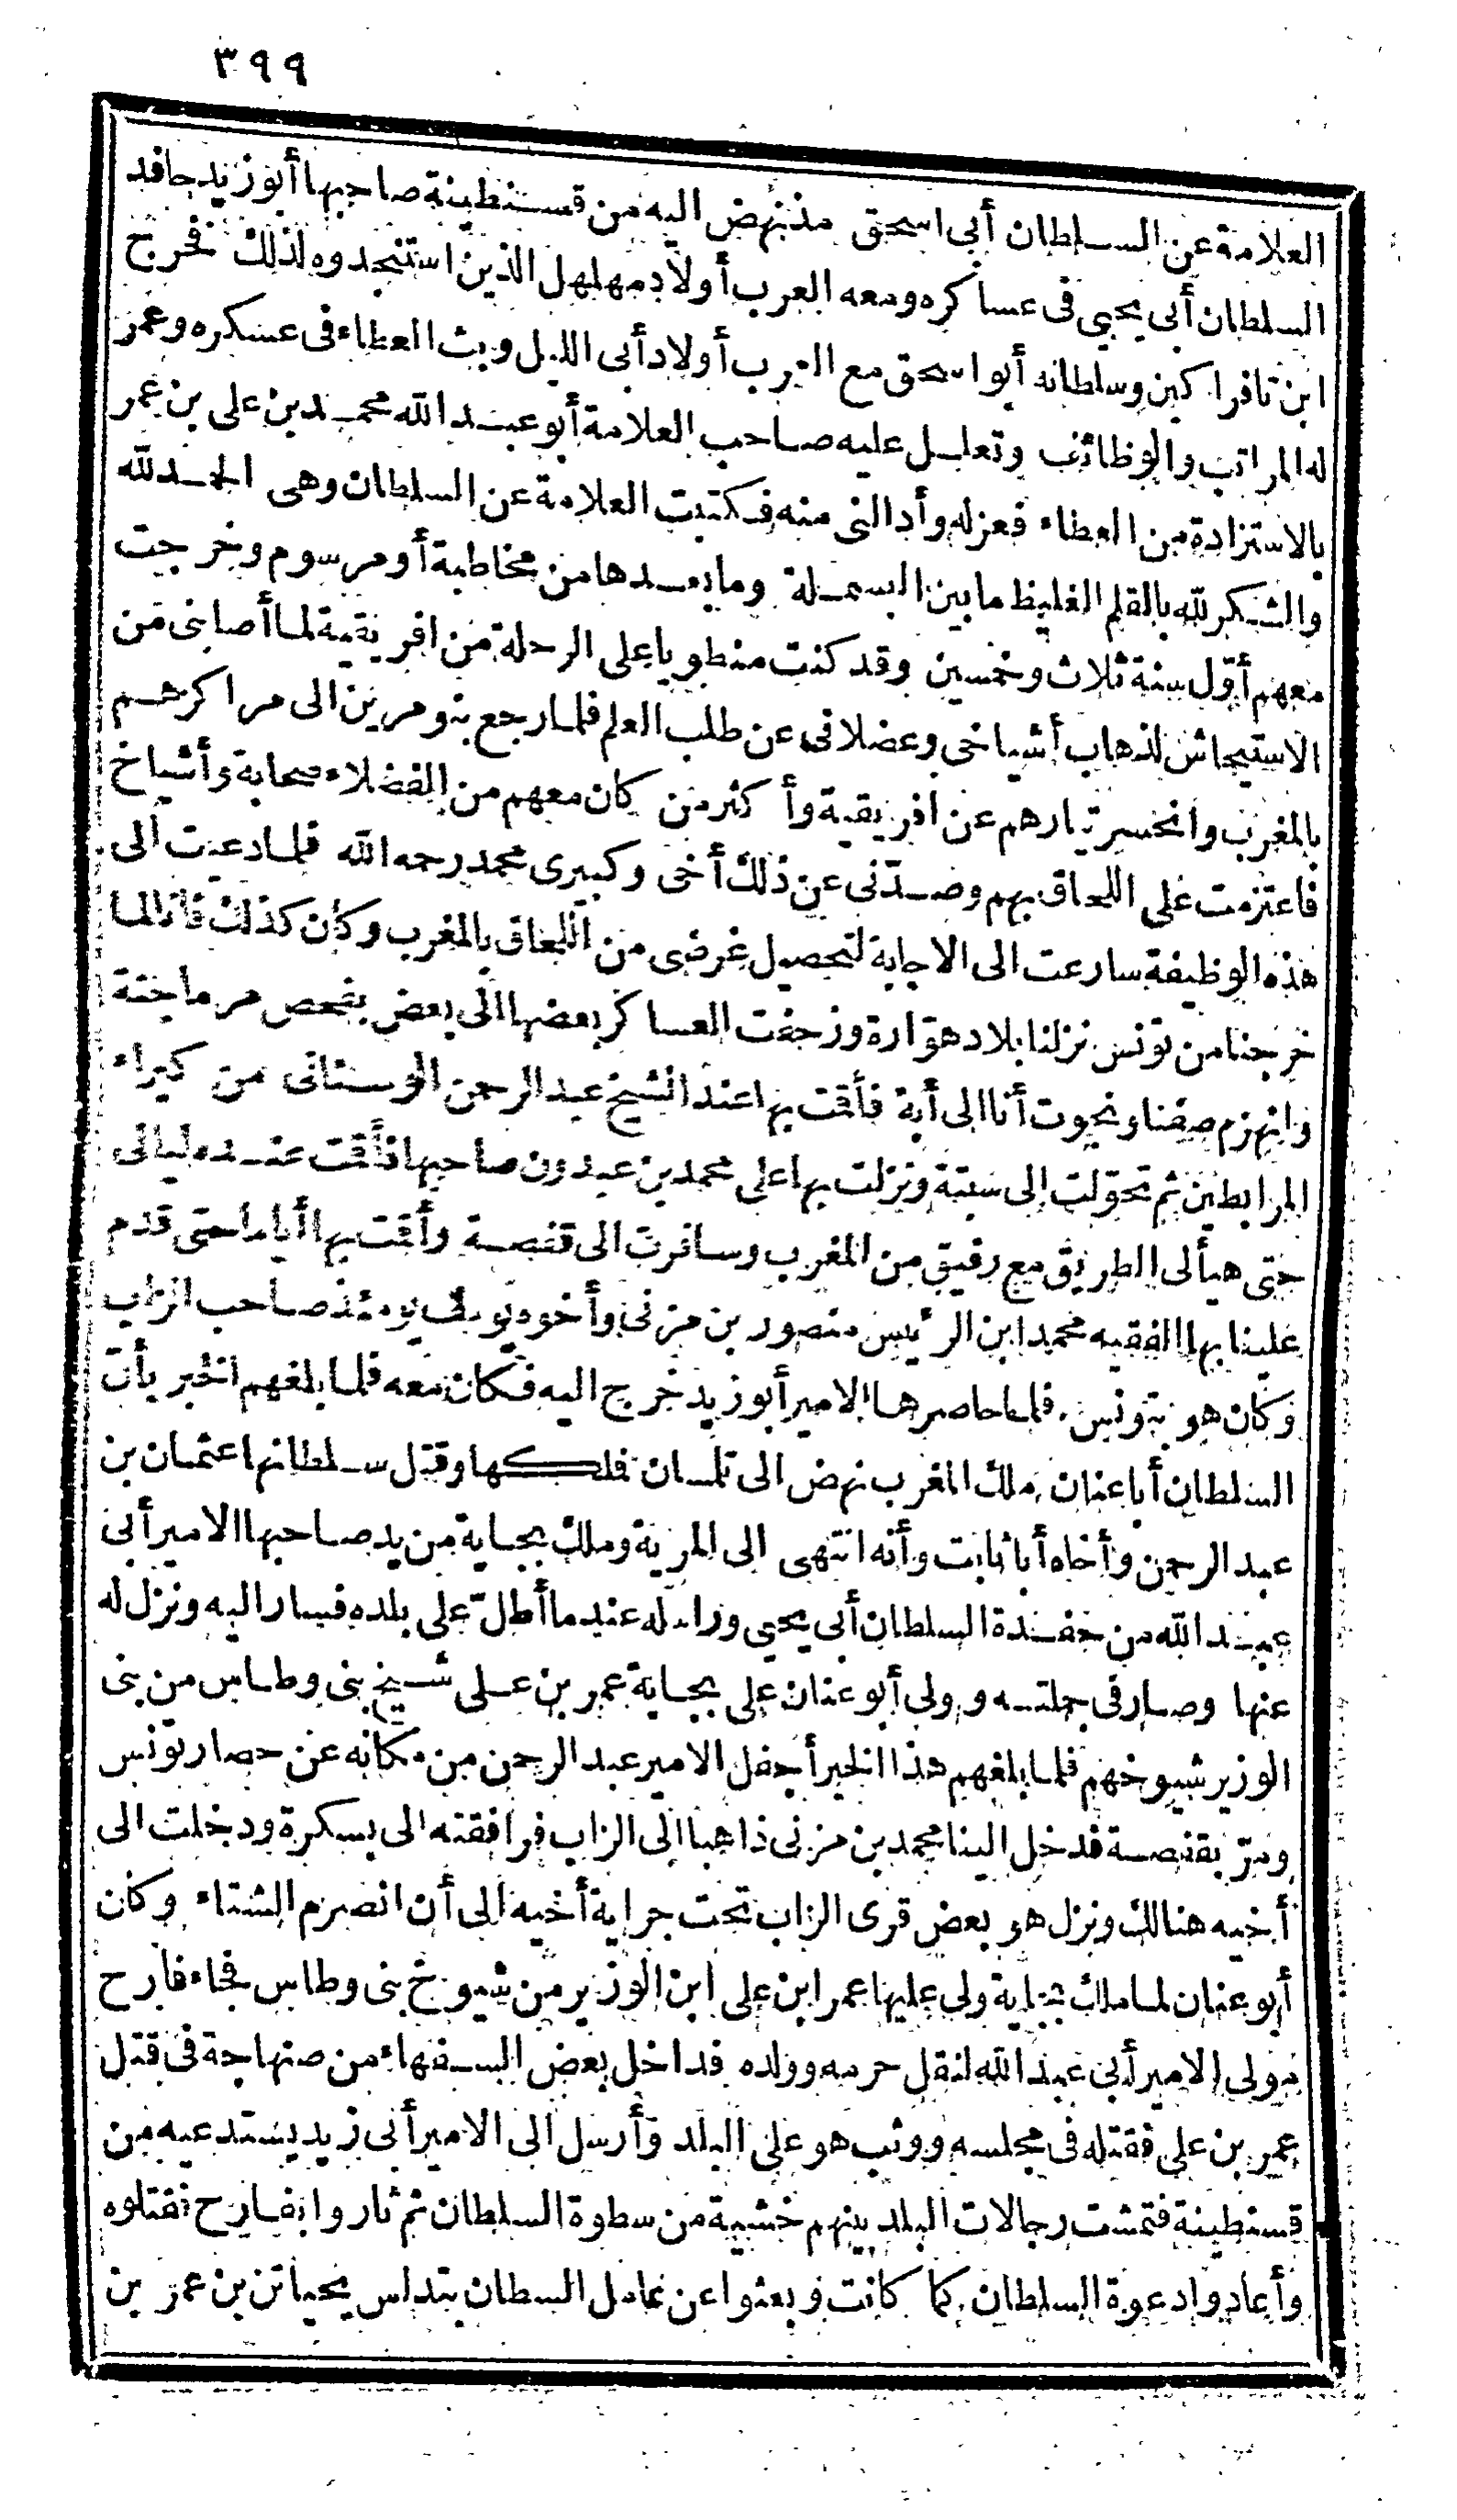 ٣٩٩
العلامة عن السلطان أبى اسحق مذ نهض اليه من قسنطينة صاحبها أبو زيد حافد
السلطان أبى يحيى فى عساكره ومعه العرب أولاد مهلهل الذين استنجدوه لذلك فخرج
ابن تافراكين وسلطانه أبو اسحق مع العرب أولاد أبى الليل وبث العطاء فى عسكره وعمر
له المراتب والوظائف وتعلل عليه صاحب العلامة أبو عبد الله محمد بن على بن عمر
بالاستزادة من العطاء فعزله وأدالنى منه فكتبت العلامة عن السلطان وهى الحمد لله
والشكر لله بالقلم الغليظ ما بين البسملة وما بعدها من مخاطبة أو مرسوم وخرجت
معهم أوّل سنة ثلاث وخمسين وقد كنت منطويا على الرحلة من افريقية لما أصابنى من
الاستيحاش لذهاب أشياخى وعضلانى عن طلب العلم فلما رجع بنو مرين الى مراكزهم
بالمغرب وانحسر تيارهم عن افريقية وأكثر من كان معهم من الفضلاء صحابة وأشياخ
فاعتزمت على اللحاق بهم وصدّنى عن ذلك أخى وكبيرى محمد رحمه الله فلما دعيت الى
هذه الوظيفة سارعت الى الاجابة لتحصيل غرضى من اللحاق بالمغرب وكان كذلك فانا لما
خرجنا من تونس نزلنا بلاد هوّارة وزحفت العساكر بعضها الى بعض بفحص مرماجنة
وانهزم صفنا ونجوت أنا الى أبة فأقمت بها عند الشيخ عبد الرحمن الوستانى من كبراء
المرابطين ثم تحوّلت الى سبتة ونزلت بها على محمد بن عبدون صاحبها فأقمت عنده ليالى
حتى هيأ لى الطريق مع رفيق من المغرب وسافرت الى قفصة وأقمت بها أياما حتى قدم
علينا بها الفقيه محمد ابن الرئيس منصور بن مزنى وأخوه يوسف يومئذ صاحب الزاب
وكان هو بتونس فلما حاصرها الامير أبو زيد خرج اليه فكان معه فلما بلغهم الخبر بأنّ
السلطان أبا عنان ملك المغرب نهض الى تلمسان فملكها وقتل سلطانها عثمان بن
عبد الرحمن وأخاه أبا ثابت وأنه انتهى الى المرية وملك بجاية من يد صاحبها الامير أبى
عبد الله من حفدة السلطان أبى يحيى وراسله عندما أطلّ على بلده فسار اليه ونزل له
عنها وصار فى جملته وولى أبو عنان على بجاية عمر بن على شيخ بنى وطاس من بنى
الوزير شيوخهم فلما بلغهم هذا الخبر أجفل الامير عبد الرحمن من مكانه عن حصار تونس
ومرّ بقفصة فدخل الينا محمد بن مزنى ذاهبا الى الزاب فرافقته الى بسكرة ودخلت الى
أخيه هنالك ونزل هو بعض قرى الزاب تحت جراية أخيه الى أن انصرم الشتاء وكان
أبو عنان لما ملك بجاية ولى عليها عمر ابن على ابن الوزير من شيوخ بنى وطاس فجاء فارح
مولى الامير أبى عبد الله لنقل حرمه وولده فداخل بعض السفهاء من صنهاجة فى قتل
عمر بن على فقتله فى مجلسه ووثب هو على البلد وأرسل الى الامير أبى زيد يستدعيه من
قسنطينة فتمشت رجالات البلد بينهم خشية من سطوة السلطان ثم ثاروا بفارح فقتلوه
وأعادوا دعوة السلطان كما كانت وبعثوا عن عامل السطان بتدلس يحياتن بن عمر بن